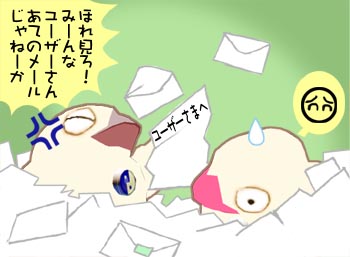 ほれ見ろ！
みーんな
ユーザーさん
あてのメール
じゃねーか
ユーザーさまへ